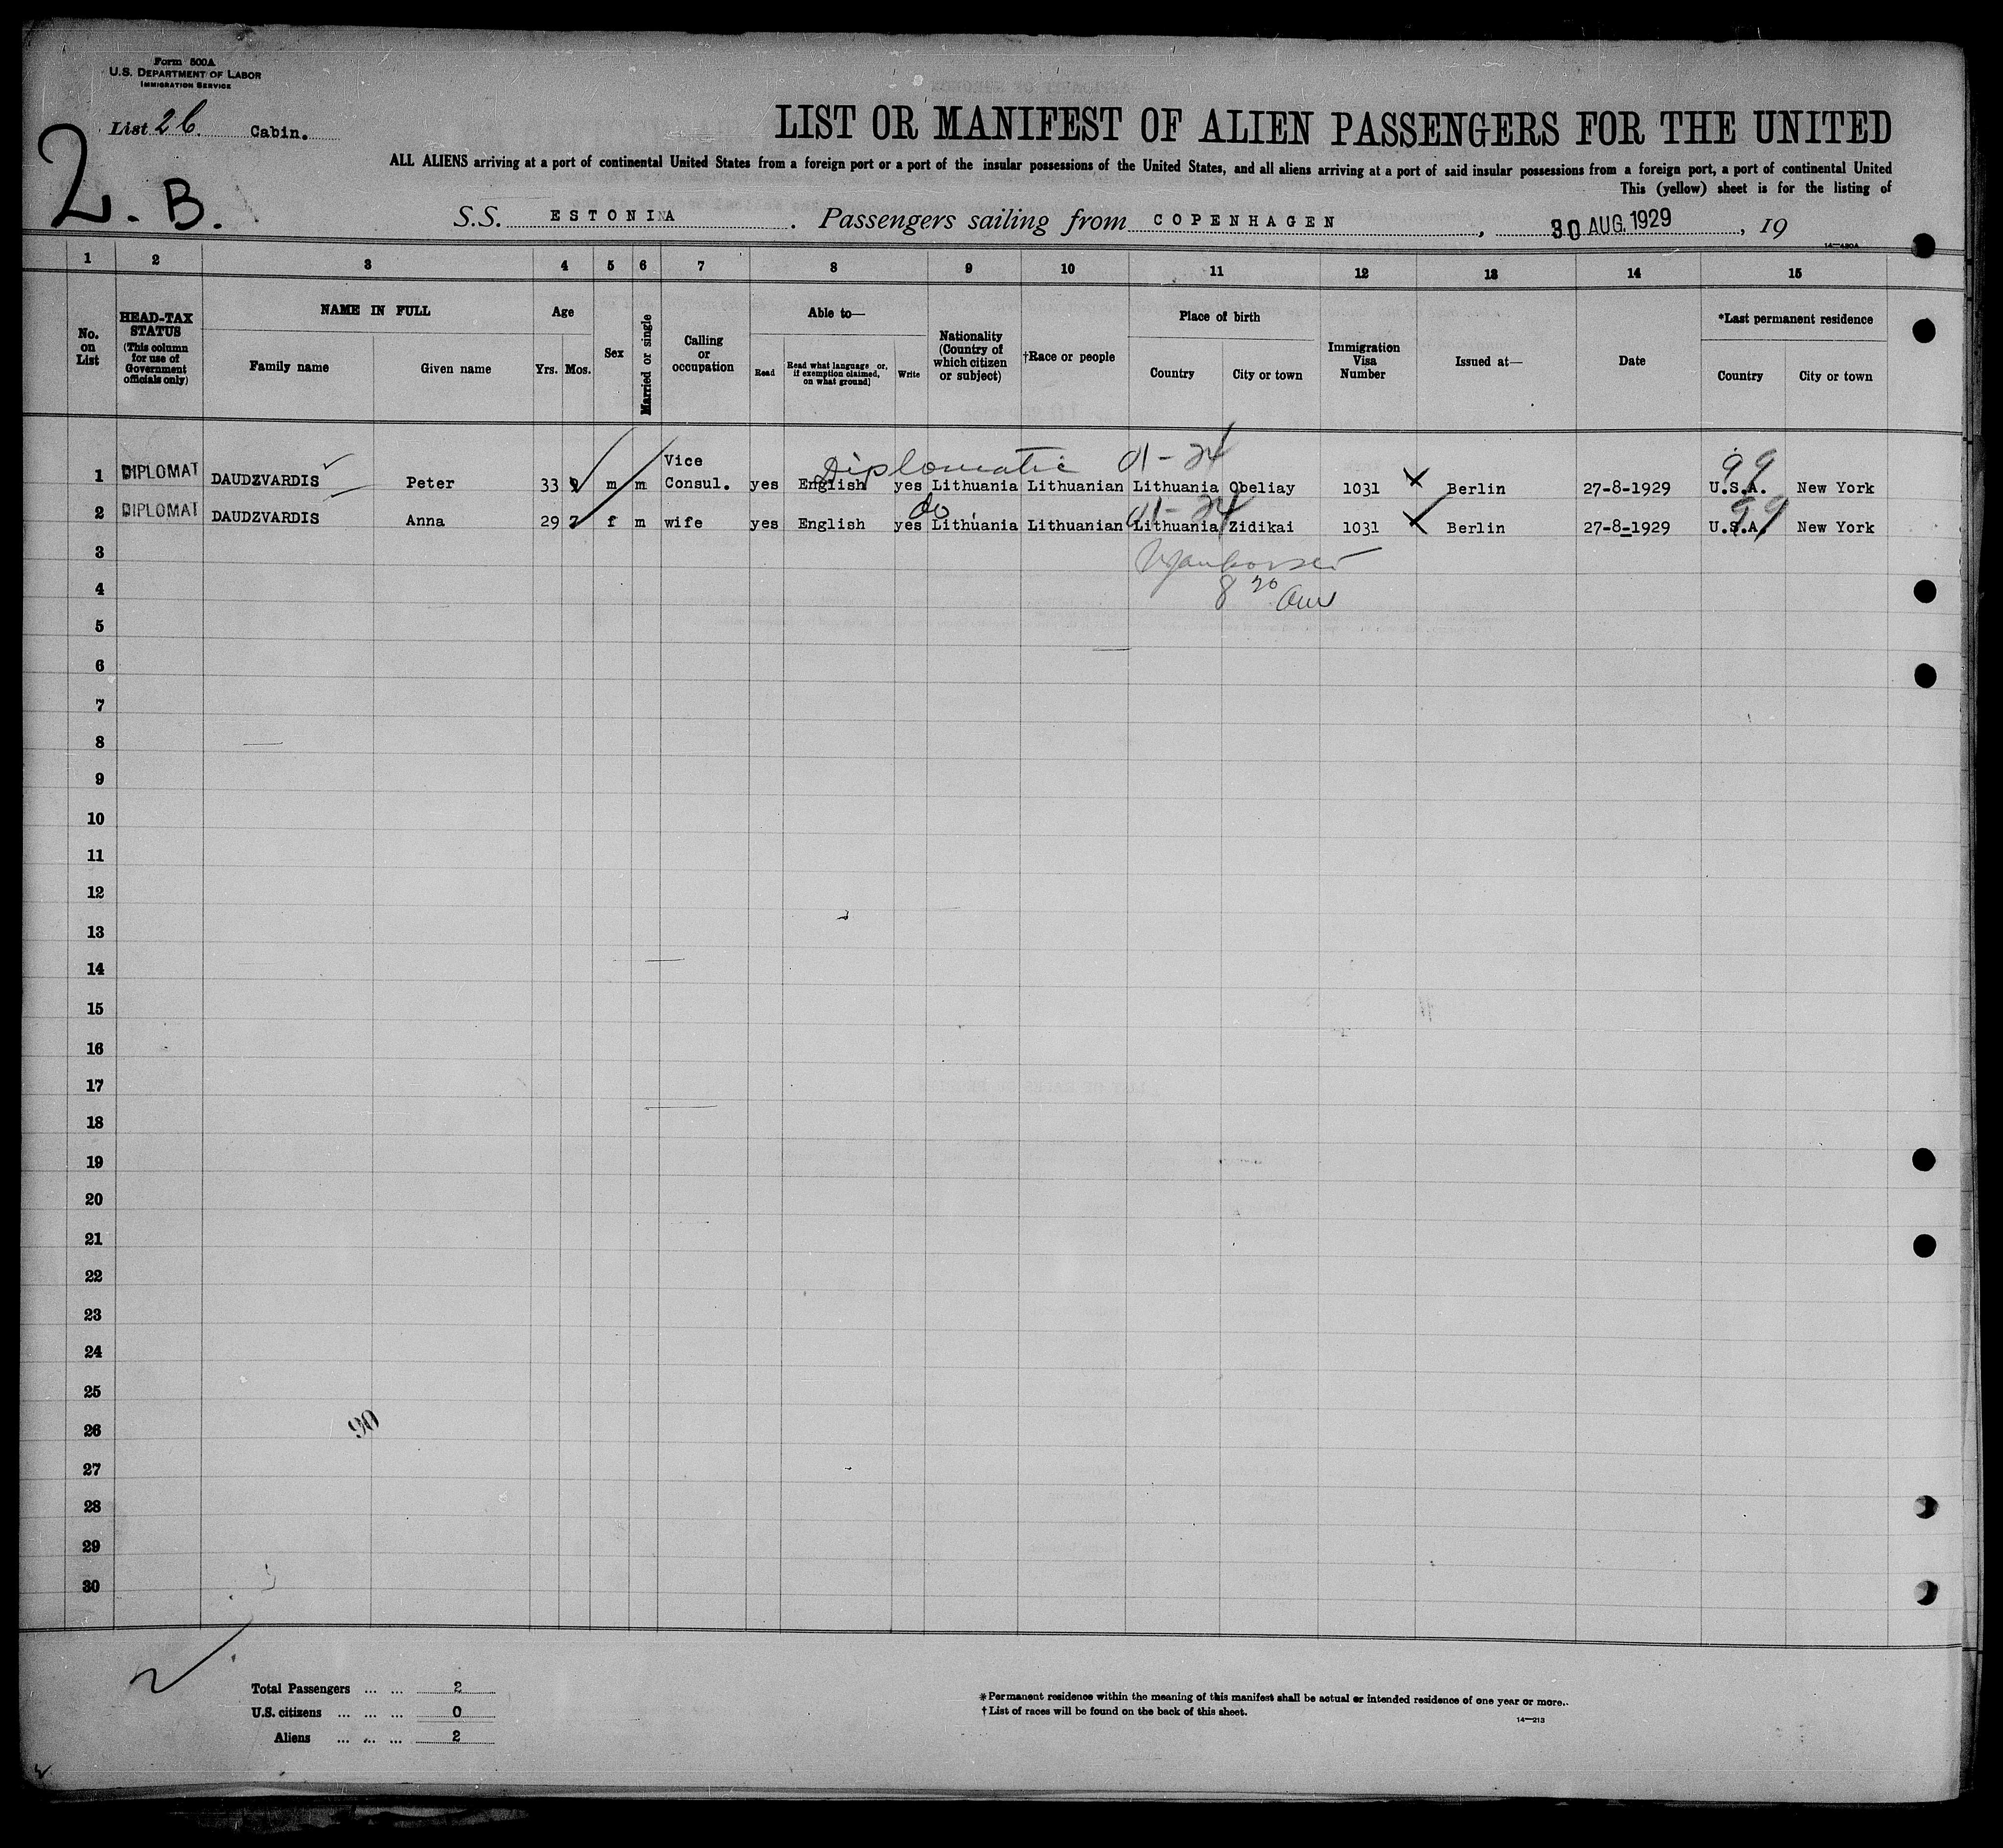 Form 500A
U.S. DEPARTMENT OF LABOR
IMMIGRATION SERVICE
List 2b. Cabin.
2. B.
LIST OR MANIFEST OF ALIEN PASSENGERS FOR THE UNITED
ALL ALIENS arriving at a port of continental United States from a foreign port or a port of the insular possessions of the United States, and all aliens arriving at a port of said insular possessions from a foreign port, a port of continental United
This (yellow) sheet is for the listing of
S.S. ESTONIA. Passengers sailing from COPENHAGEN, 30 AUG. 1929, 19
14—480A
1 2 3 4 5 6 7 8 9 10 11 12 13 14 15
No. on List
HEAD-TAX STATUS (This column for use of Government officials only)
NAME IN FULL
Family name Given name
Age
Yrs. Mos.
Sex
Married or single
Calling or occupation
Able to—
Read Read what language or, if exemption claimed, on what ground] Write
Nationality (Country of which citizen or subject)
†Race or people
Place of birth
Country City or town
Immigration Visa Number
Issued at—
Date
*Last permanent residence
Country City or town
Diplomatic
99
1 DIPLOMAT DAUDZVARDIS Peter 33 m m Vice Consul. yes English yes Lithuania Lithuanian Lithuania Obeliay 1031 Berlin 27-8-1929 U.S.A. New York
do
99
2 DIPLOMAT DAUDZVARDIS Anna 29 7 f m wife yes English yes Lithuania Lithuanian Lithuania Zidikai 1031 Berlin 27-8-1929 U.S.A. New York
3
4
5
6
7
8
9
10
11
12
13
14
15
16
17
18
19
20
21
22
23
24
25
26
27
28
29
30
90
Total Passengers ... ... 2
U.S. citizens ... ... ... 0
Aliens ... ... ... 2
*Permanent residence within the meaning of this manifest shall be actual or intended residence of one year or more..
†List of races will be found on the back of this sheet.
14—213